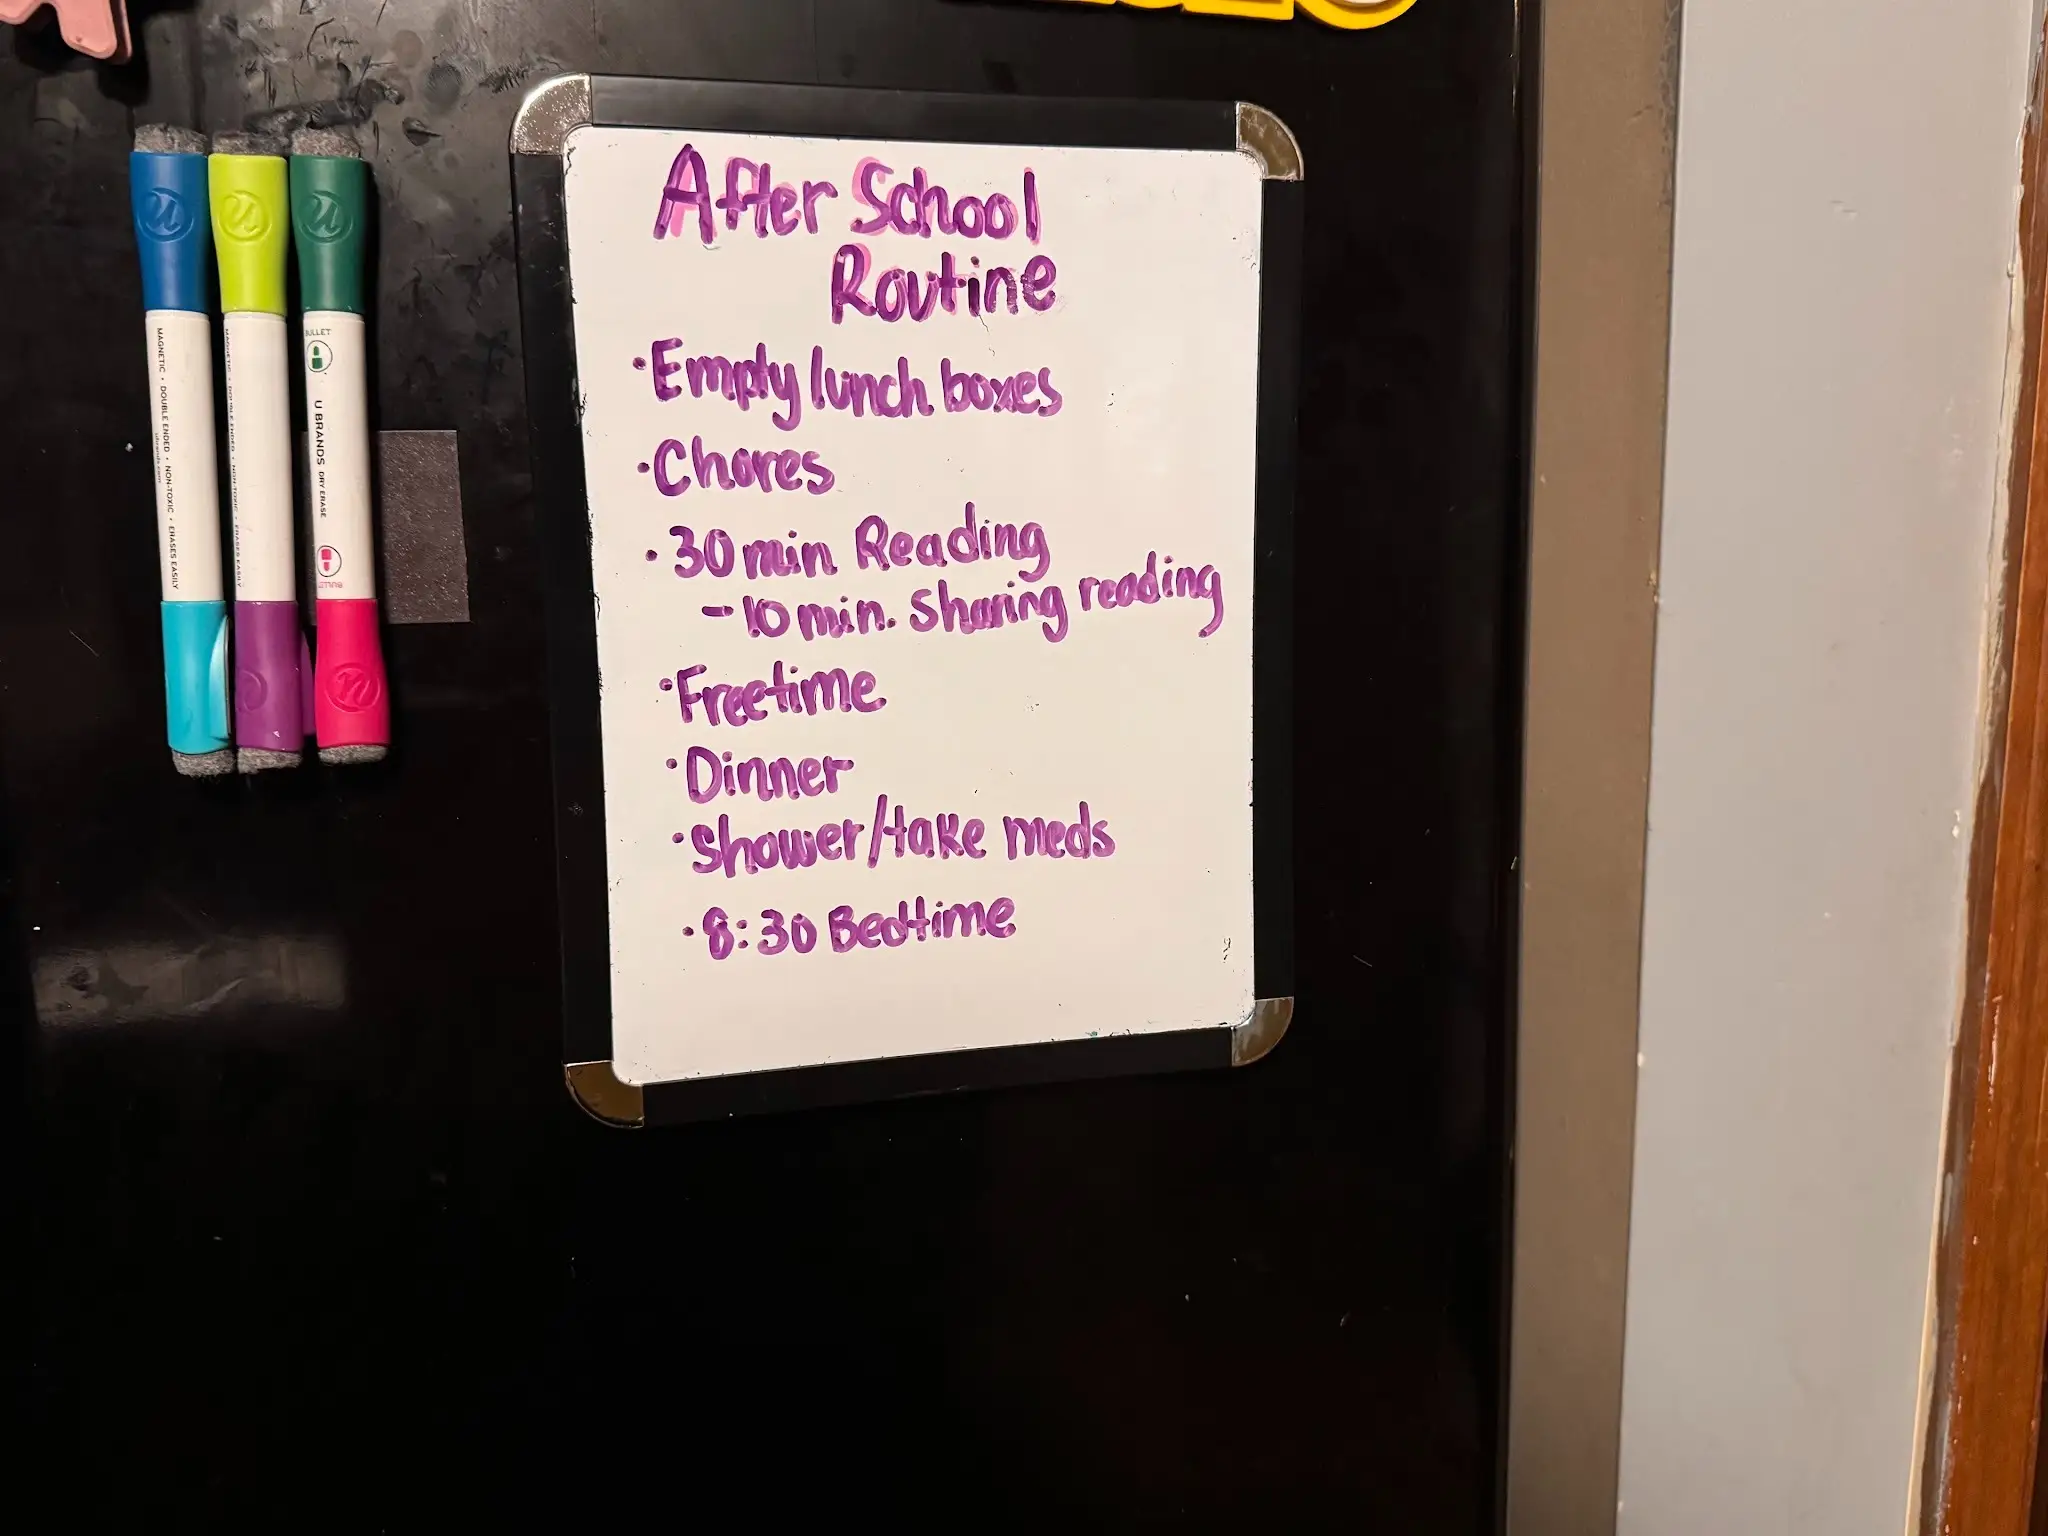 After School
Routine
•Empty lunch boxes
•Chores
•30 min Reading
-10 min. sharing reading
•Freetime
•Dinner
•Shower/take meds
•8:30 Bedtime
MAGNETIC • DOUBLE ENDED • NON-TOXIC • ERASES EASILY
ubrands.com
MAGNETIC • DOUBLE ENDED • NON-TOXIC • ERASES EASILY
BULLET
U BRANDS DRY ERASE
BULLET